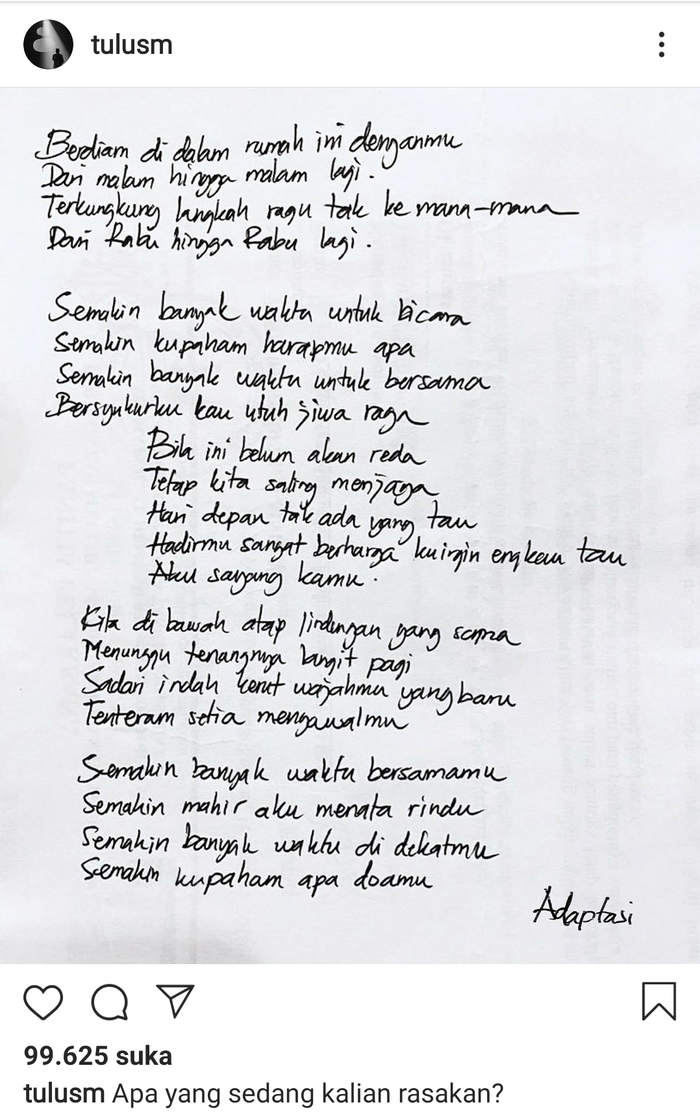 tulusm
Berdiam di dalam rumah ini denganmu
Dari malam hingga malam lagi.
Terkungkung langkah ragu tak ke mana-mana
Dari Rabu hingga Rabu lagi.
Semakin banyak waktu untuk bicara
Semakin kupaham harapmu apa
Semakin banyak waktu untuk bersama
Bersyukurku kau utuh jiwa raga
Bila ini belum akan reda
Tetap kita saling menjaga
Hari depan tak ada yang tau
Hadirmu sangat berharga kuingin engkau tau
Aku sayang kamu.
Kita di bawah atap lindungan yang sama
Menunggu tenangnya langit pagi
Sadari indah kerut wajahmu yang baru
Tenteram setia mengawalmu
Semakin banyak waktu bersamamu
Semakin mahir aku menata rindu
Semakin banyak waktu di dekatmu
Semakin kupaham apa doamu
Adaptasi
99.625 suka
tulusm Apa yang sedang kalian rasakan?